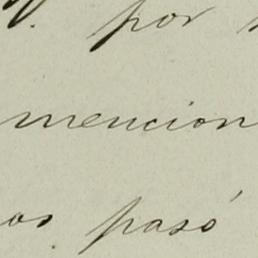 por
mencion
os pasó